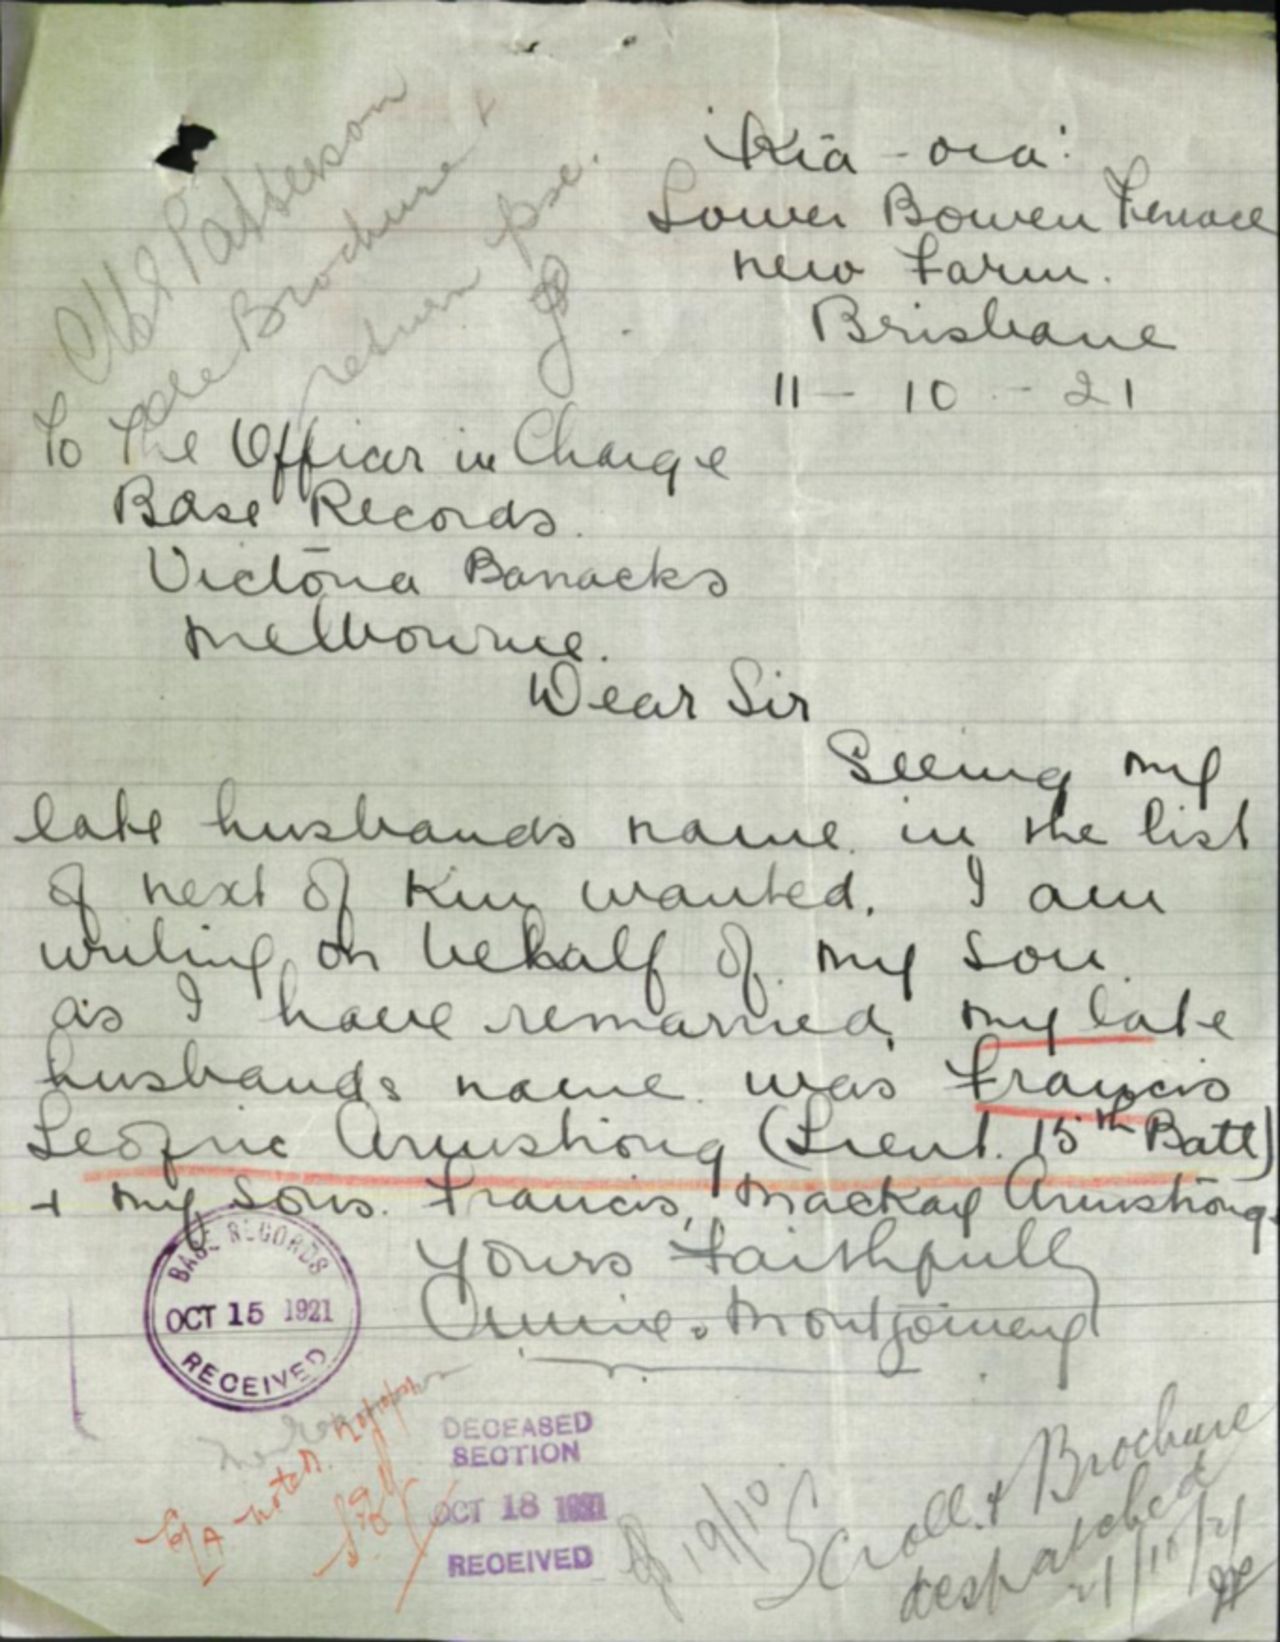 'Kia-ora'
Lower Bowen Terrace
New Farm.
Brisbane
11-10-21
Patterson
Brochure &
return pse.
To The Officer in Charge
Base Records.
Victoria Barracks
Melbourne.
Dear Sir
Seeing my
late husbands name in the list
of next of Kin wanted. I am
writing on behalf of my son
as I have remarried, my late
husbands name was Francis
Leofric Armstrong (Lieut. 15th Batt)
+ my sons. Francis, Mackay Armstrong.
Yours Faithfull
Annie. Montgomery
BASE RECORDS
OCT 15 1921
RECEIVED
DECEASED
SECTION
OCT 18 1921
RECEIVED
19/10
Scroll & Brochure
despatched
21/10/21